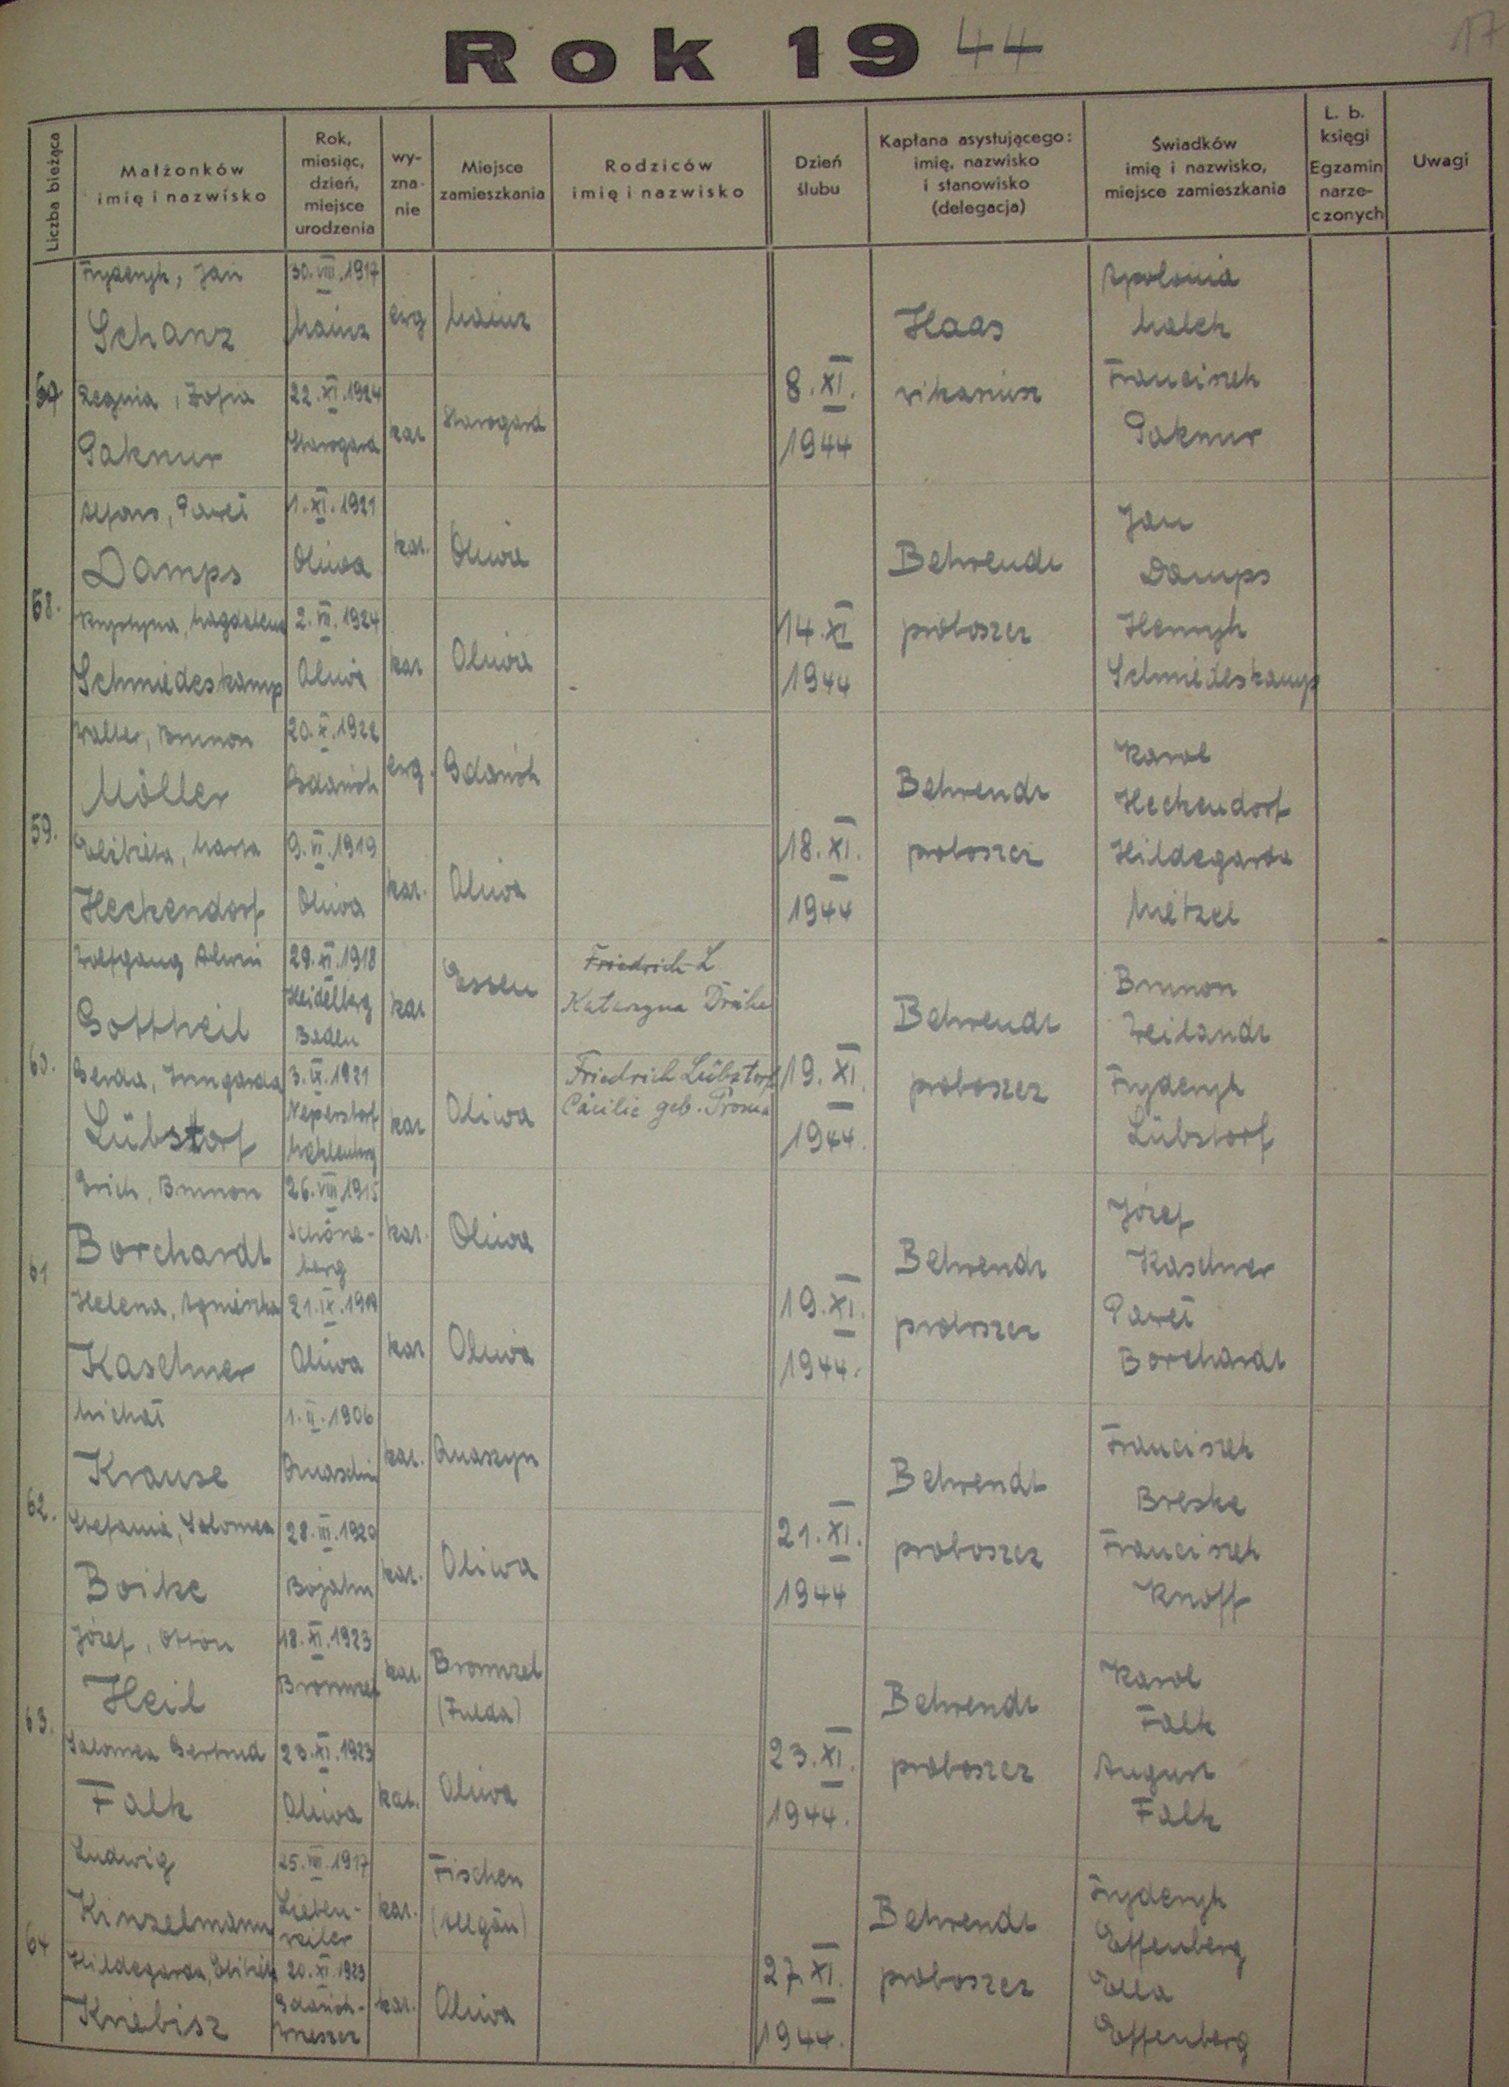 Rok 1944
17
Liczba bieżąca
Małżonków
imię i nazwisko
Rok,
miesiąc,
dzień,
miejsce
urodzenia
wy-
zna-
nie
Miejsce
zamieszkania
Rodziców
imię i nazwisko
Dzień
ślubu
Kapłana asystującego:
imię, nazwisko
i stanowisko
(delegacja)
Świadków
imię i nazwisko,
miejsce zamieszkania
L. b.
księgi
Egzamin
narze-
czonych
Uwagi
Fryderyk, Jan
Schanz
30.VIII.1917
Mainz
ewg
Mainz
Regina, Zofia
Paknur
22.XI.1924
Starogard
kat
Starogard
8.XI.
1944
Haas
wikariusz
Apolonia
Malek
Franciszek
Paknur
58.
Alfons, Paweł
Damps
1.XI.1921
Oliwa
kat.
Oliwa
Krystyna, Magdalena
Schmiedeskamp
2.VII.1924
Oliwa
kat
Oliwa
14.XI
1944
Behrendt
proboszcz
Jan
Damps
Henryk
Schmiedeskamp
59.
Walter, Brunon
Möller
20.X.1922
Gdańsk
ewg.
Gdańsk
Elżbieta, Maria
Heckendorf
9.VI.1919
Oliwa
kat.
Oliwa
18.XI.
1944
Behrendt
proboszcz
Karol
Heckendorf
Hildegarda
Metzel
60.
Wolfgang Alwin
Gottheil
29.XI.1918
Heidelberg
Baden
kat
Essen
Friedrich L
Katarzyna
Gerda, Irmgarda
Lübstorf
3.IX.1921
Meklenburg
kat
Oliwa
Friedrich Lübstorf
Cäcilie geb.
19.XI
1944.
Behrendt
proboszcz
Brunon
Weilandt
Fryderyk
Lübstorf
61
Erich, Brunon
Borchardt
26.VIII.1915
Schöne-
berg
kat.
Oliwa
Helena, Agnieszka
Kaschner
21.IX.1919
Oliwa
kat
Oliwa
19.XI.
1944.
Behrendt
proboszcz
Józef
Kaschner
Paweł
Borchardt
62.
Michał
Krause
1.II.1906
Quaschin
kat.
Quaszyn
Stefania, Salomea
Boike
28.III.1920
Bojahn
kat.
Oliwa
21.XI.
1944
Behrendt
proboszcz
Franciszek
Breske
Franciszek
Knoff
63.
Józef, Otton
Heil
18.XI.1923
Bronnzell
kat.
Bronnzel
(Fulda)
Salomea Gertrud
Falk
23.XI.1923
Oliwa
kat.
Oliwa
23.XI.
1944.
Behrendt
proboszcz
Karol
Falk
August
Falk
64
Ludwig
Kinzelmann
25.VIII.1917
Lieben-
weiler
kat.
Fischen
(Allgäu)
Hildegarda, Elżbieta
Kniebisz
20.XI.1923
Gdańsk-
Wrzeszcz
kat.
Oliwa
27.XI.
1944.
Behrendt
proboszcz
Fryderyk
Effenberg
Ella
Effenberg